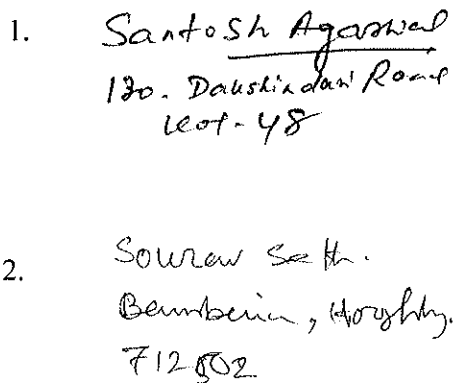 1. Santosh Agarwal
120. Dakshindari Road
Kol-48
2. Sourav Seth.
Bansberia, Hooghly.
712502